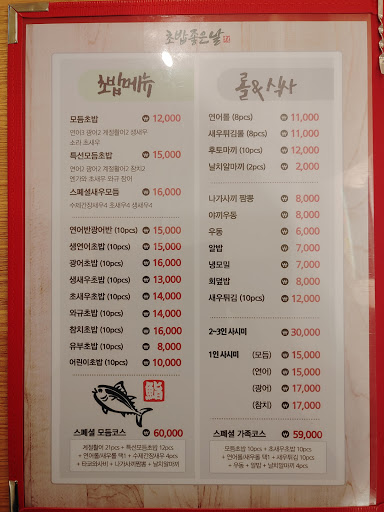 초밥좋은날
초밥메뉴
모듬초밥 ₩ 12,000
연어3 광어2 계절활어2 생새우
소라 초새우
특선모듬초밥 ₩ 15,000
연어3 광어2 계절활어2 참치2
엔가와 초새우 와규 장어
스페셜새우모듬 ₩ 16,000
수제간장새우4 초새우4 생새우4
연어반광어반 (10pcs) ₩ 15,000
생연어초밥 (10pcs) ₩ 15,000
광어초밥 (10pcs) ₩ 16,000
생새우초밥 (10pcs) ₩ 13,000
초새우초밥 (10pcs) ₩ 14,000
와규초밥 (10pcs) ₩ 14,000
참치초밥 (10pcs) ₩ 16,000
유부초밥 (10pcs) ₩ 8,000
어린이초밥 (10pcs) ₩ 10,000
鮨
스페셜 모듬코스 ₩ 60,000
계절활어 21pcs + 특선모듬초밥 12pcs
+ 연어롤/새우롤 택1 + 수제간장새우 4pcs
+ 타코와사비 + 나가사끼짬뽕 + 날치알마끼
롤&식사
연어롤 (8pcs) ₩ 11,000
새우튀김롤 (8pcs) ₩ 11,000
후토마끼 (10pcs) ₩ 12,000
날치알마끼 (2pcs) ₩ 2,000
나가사끼 짬뽕 ₩ 8,000
야끼우동 ₩ 8,000
우동 ₩ 6,000
알밥 ₩ 7,000
냉모밀 ₩ 7,000
회덮밥 ₩ 8,000
새우튀김 (10pcs) ₩ 12,000
2~3인 사시미 ₩ 30,000
1인 사시미 (모듬) ₩ 15,000
(연어) ₩ 15,000
(광어) ₩ 17,000
(참치) ₩ 17,000
스페셜 가족코스 ₩ 59,000
모듬초밥 10pcs + 초새우초밥 10pcs
+ 연어롤/새우롤 택1 + 새우튀김 10pcs
+ 우동 + 알밥 + 날치알마끼 4pcs